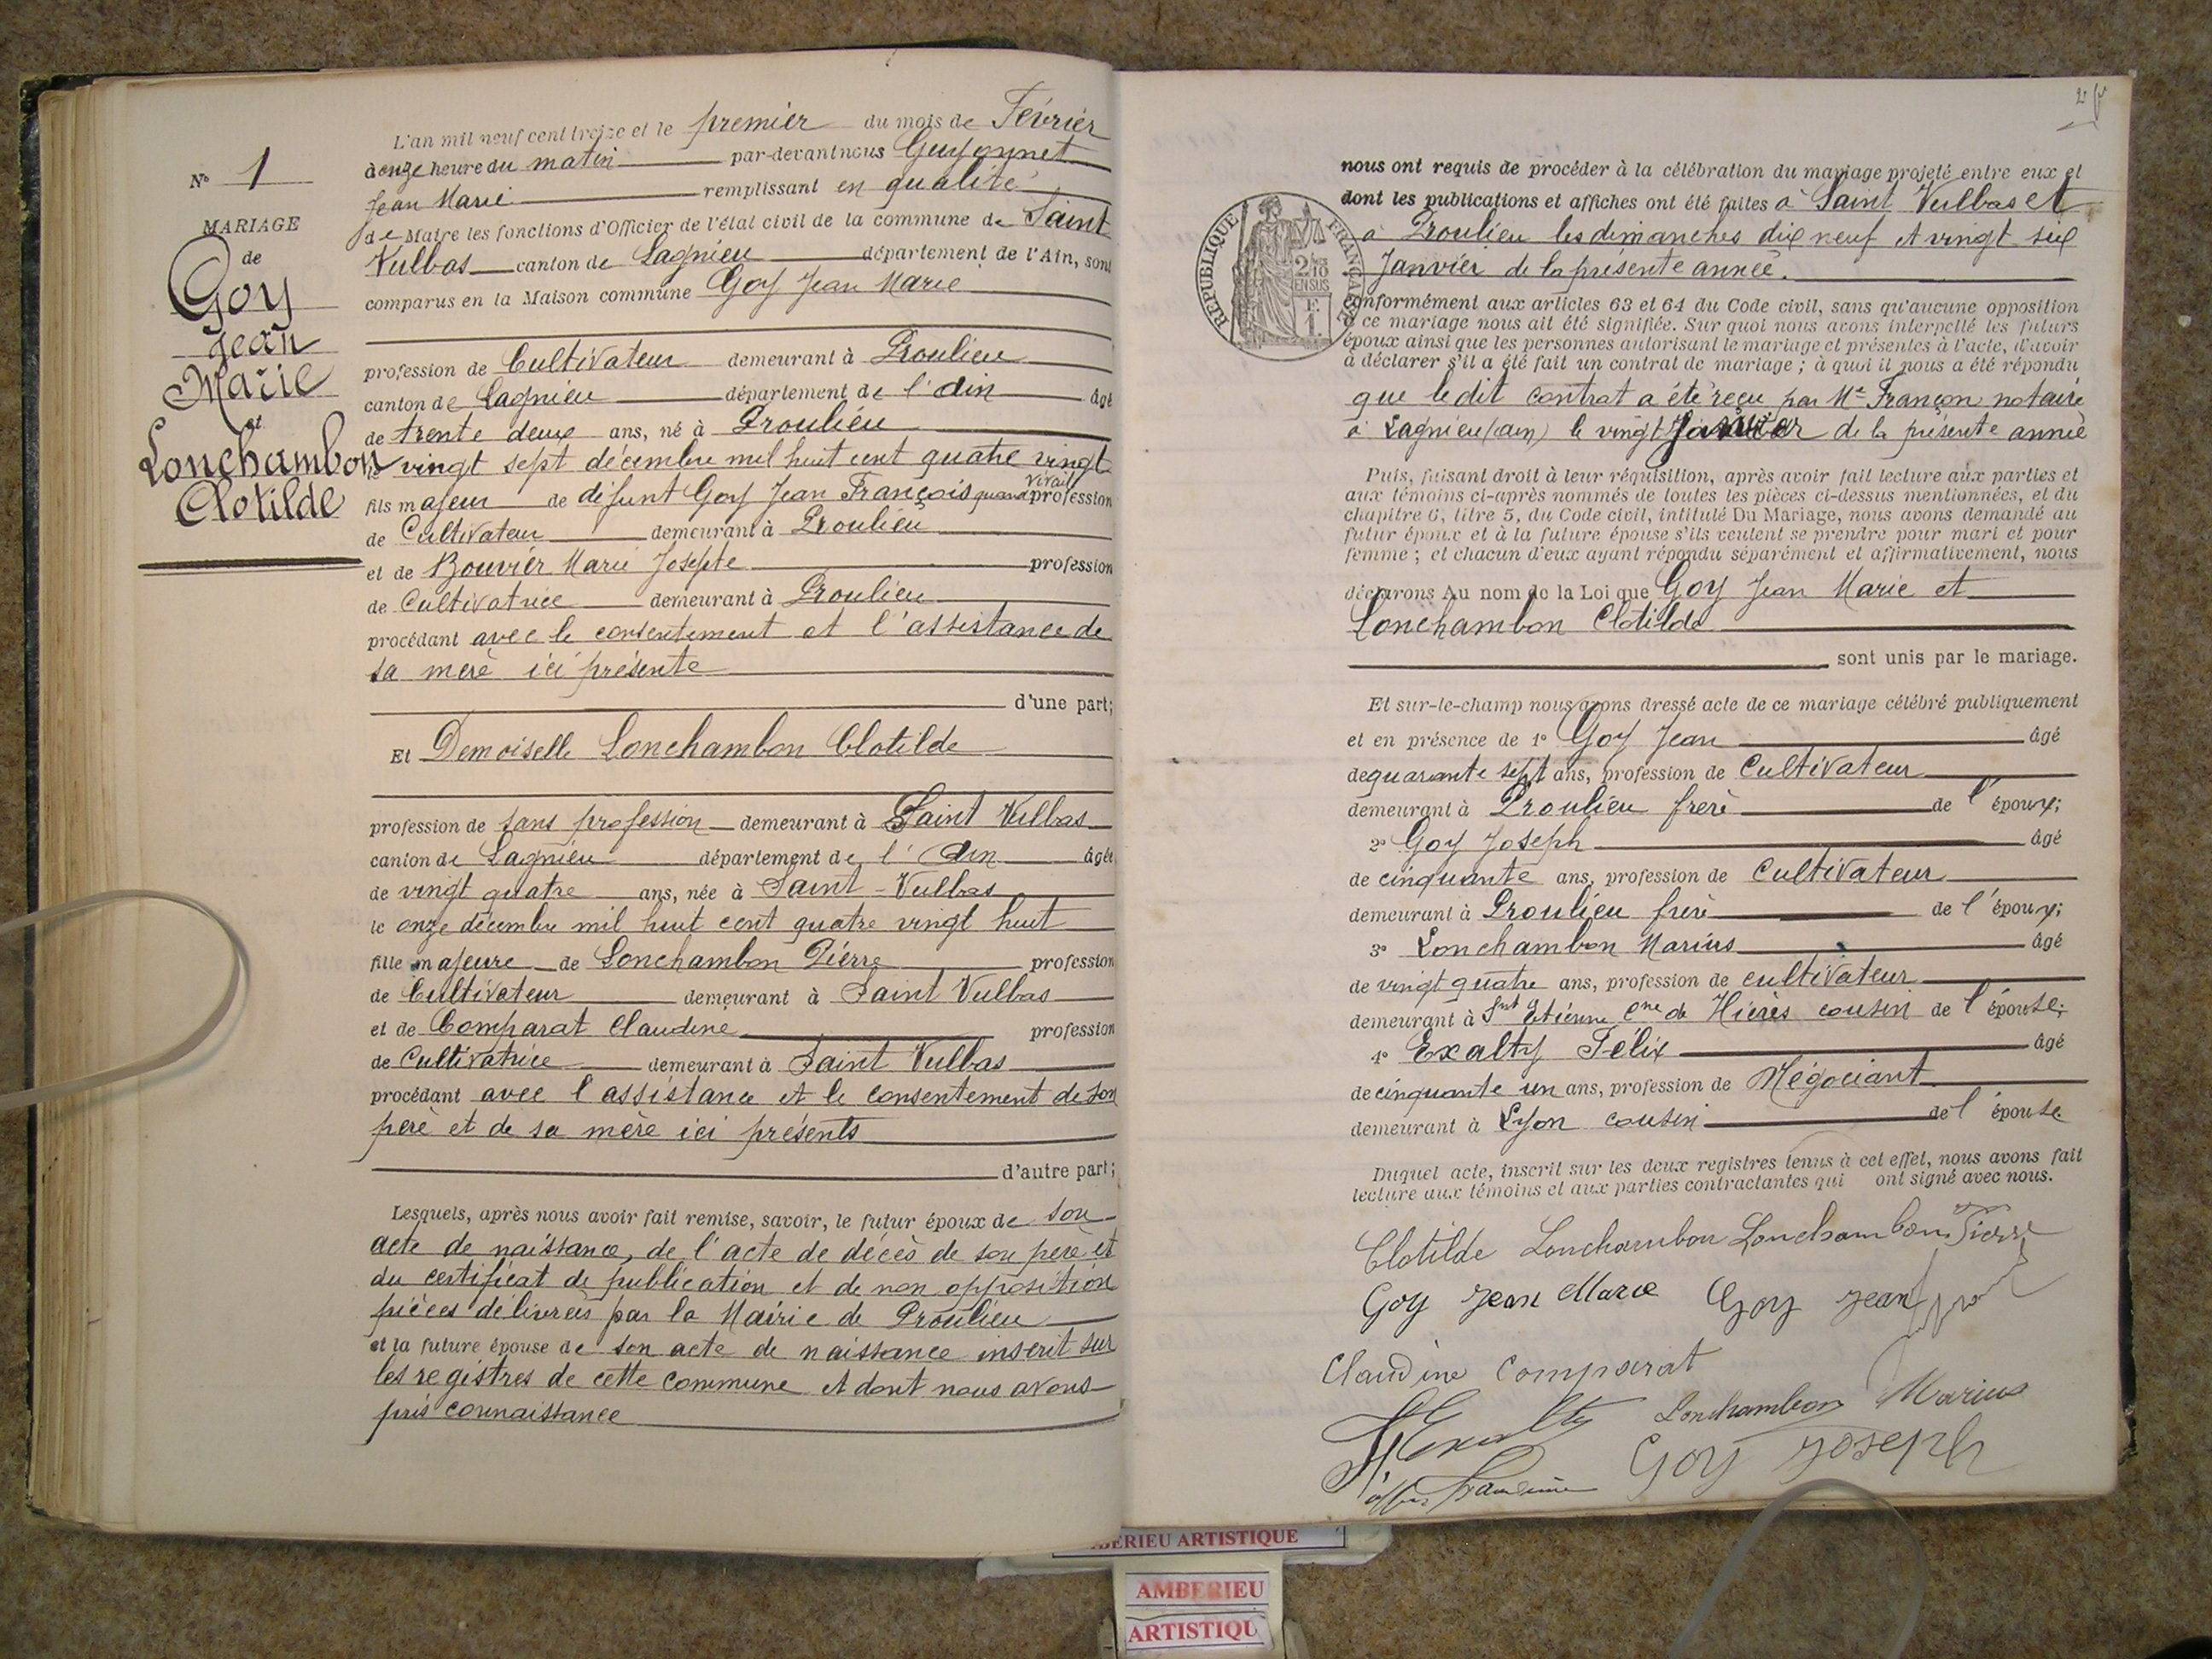 N° 1
MARIAGE
de
Goy
Jean
Marie
et
Lonchambon
Clotilde
L'an mil neuf cent treize et le premier du mois de Février
à onze heure du matin par-devant nous Guyonnet
Jean Marie remplissant en qualité
de Maire les fonctions d'Officier de l'état civil de la commune de Saint
Vulbas canton de Lagnieu département de l'Ain, sont
comparus en la Maison commune Goy Jean Marie
profession de Cultivateur demeurant à Proulieu
canton de Lagnieu département de l'Ain âgé
de trente deux ans, né à Proulieu
le vingt sept décembre mil huit cent quatre vingt
fils majeur de défunt Goy Jean François quand vivait profession
de Cultivateur demeurant à Proulieu
et de Bouvier Marie Josepte profession
de Cultivatrice demeurant à Proulieu
procédant avec le consentement et l'assistance de
sa mère ici présente
d'une part;
Et Demoiselle Lonchambon Clotilde
profession de sans profession demeurant à Saint Vulbas
canton de Lagnieu département de l'Ain âgée
de vingt quatre ans, née à Saint-Vulbas
le onze décembre mil huit cent quatre vingt huit
fille majeure de Lonchambon Pierre profession
de Cultivateur demeurant à Saint Vulbas
et de Comparat Claudine profession
de Cultivatrice demeurant à Saint Vulbas
procédant avec l'assistance et le consentement de son
père et de sa mère ici présents
d'autre part;
Lesquels, après nous avoir fait remise, savoir, le futur époux de son
acte de naissance, de l'acte de décès de son père et
du certificat de publication et de non opposition
pièces délivrées par la Mairie de Proulieu
et la future épouse de son acte de naissance inscrit sur
les registres de cette commune et dont nous avons
pris connaissance
2
nous ont requis de procéder à la célébration du mariage projeté entre eux et
dont les publications et affiches ont été faites à Saint Vulbas et
à Proulieu les dimanches dix neuf et vingt six
Janvier de la présente année.
RÉPUBLIQUE FRANÇAISE
2/10 EN SUS
E.
1.
conformément aux articles 63 et 64 du Code civil, sans qu'aucune opposition
à ce mariage nous ait été signifiée. Sur quoi nous avons interpellé les futurs
époux ainsi que les personnes autorisant le mariage et présentes à l'acte, d'avoir
à déclarer s'il a été fait un contrat de mariage ; à quoi il nous a été répondu
que le dit contrat a été reçu par Me Françon notaire
à Lagnieu (ain) le vingt Janvier de la présente année
Puis, faisant droit à leur réquisition, après avoir fait lecture aux parties et
aux témoins ci-après nommés de toutes les pièces ci-dessus mentionnées, et du
chapitre 6, titre 5, du Code civil, intitulé Du Mariage, nous avons demandé au
futur époux et à la future épouse s'ils veulent se prendre pour mari et pour
femme ; et chacun d'eux ayant répondu séparément et affirmativement, nous
déclarons Au nom de la Loi que Goy Jean Marie et
Lonchambon Clotilde
sont unis par le mariage.
Et sur-le-champ nous avons dressé acte de ce mariage célébré publiquement
et en présence de 1° Goy Jean âgé
de quarante sept ans, profession de Cultivateur
demeurant à Proulieu frère de l'époux;
2° Goy Joseph âgé
de cinquante ans, profession de Cultivateur
demeurant à Proulieu frère de l'époux;
3° Lonchambon Marius âgé
de vingt quatre ans, profession de cultivateur
demeurant à Snt Etienne Cne de Hières cousin de l'épouse;
4° Exalty Félix âgé
de cinquante un ans, profession de Négociant
demeurant à Lyon cousin de l'épouse
Duquel acte, inscrit sur les deux registres tenus à cet effet, nous avons fait
lecture aux témoins et aux parties contractantes qui ont signé avec nous.
Clotilde Lonchambon Lonchambon Pierre
Goy Jean Marie Goy Jean
Claudine Comparat
Exalty Lonchambon Marius
Goy Joseph
AMBERIEU ARTISTIQUE
AMBERIEU
ARTISTIQU